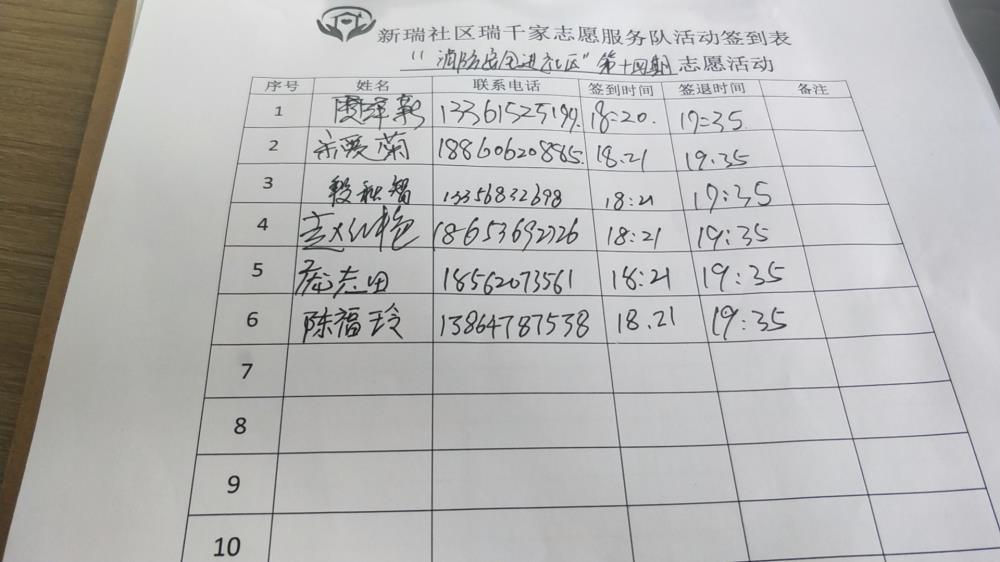 新瑞社区瑞千家志愿服务队活动签到表
"消防安全进社区"第十四期志愿活动
序号 姓名 联系电话 签到时间 签退时间 备注
1 13361525199. 18:20. 19:35
2 宗爱菊 18860620885. 18.21 19.35
3 段秋智 13356832698 18:21 19:35
4 18653692726 18:21 19:35
5 庞志田 18562073561 18:21 19:35
6 陈福玲 13864787538 18.21 19:35
7
8
9
10